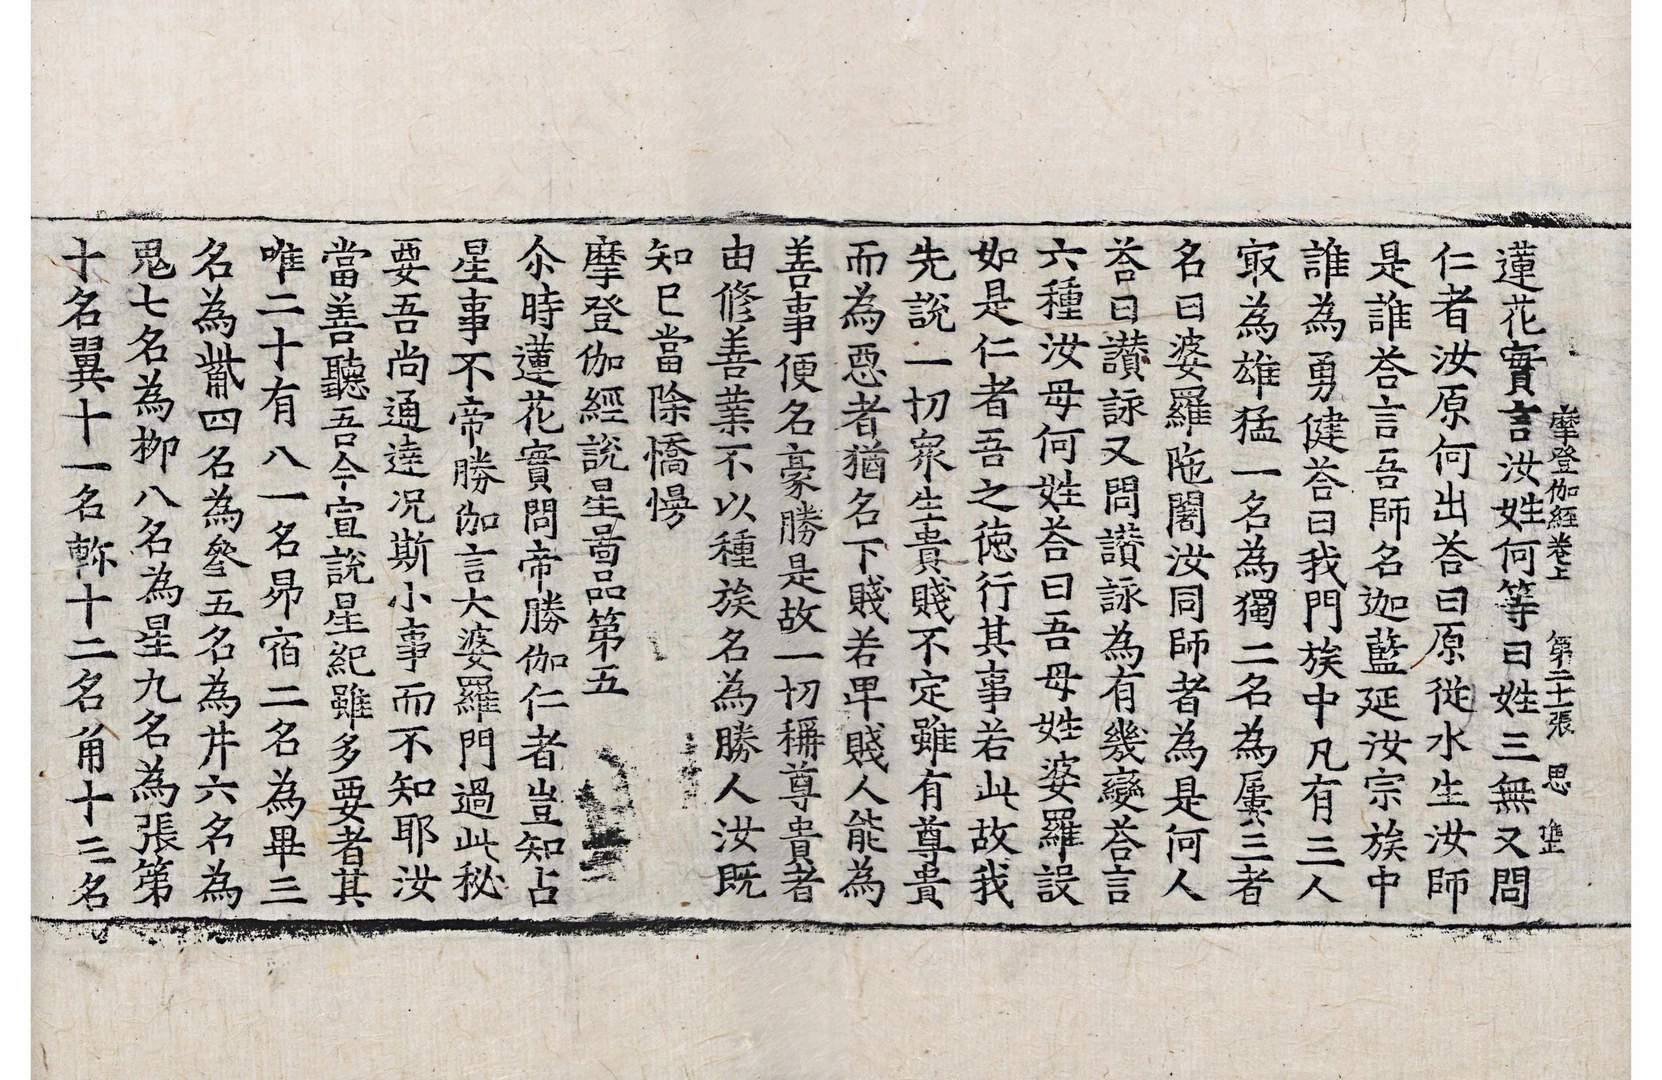 摩登伽經卷上　第二十張　思
蓮花實言汝姓何等曰姓三無又問
仁者汝原何出荅曰原從水生汝師
是誰荅言吾師名迦藍延汝宗族中
誰為勇健荅曰我門族中凡有三人
㝡為雄猛一名為獨二名為屢三者
名曰婆羅陁闍汝同師者為是何人
荅曰讃詠又問讃詠為有幾變荅言
六種汝母何姓荅曰吾母姓婆羅設
如是仁者吾之徳行其事若此故我
先說一切衆生貴賤不定雖有尊貴
而為惡者猶名下賤若卑賤人能為
善事便名豪勝是故一切稱尊貴者
由修善業不以種族名為勝人汝既
知已當除憍慢
摩登伽經說星啚品第五
尒時蓮花實問帝勝伽仁者豈知占
星事不帝勝伽言大婆羅門過此秘
要吾尚通達况斯小事而不知耶汝
當善聽吾今宣說星紀雖多要者其
唯二十有八一名昴宿二名為畢三
名為觜四名為參五名為井六名為
鬼七名為柳八名為星九名為張第
十名翼十一名軫十二名角十三名